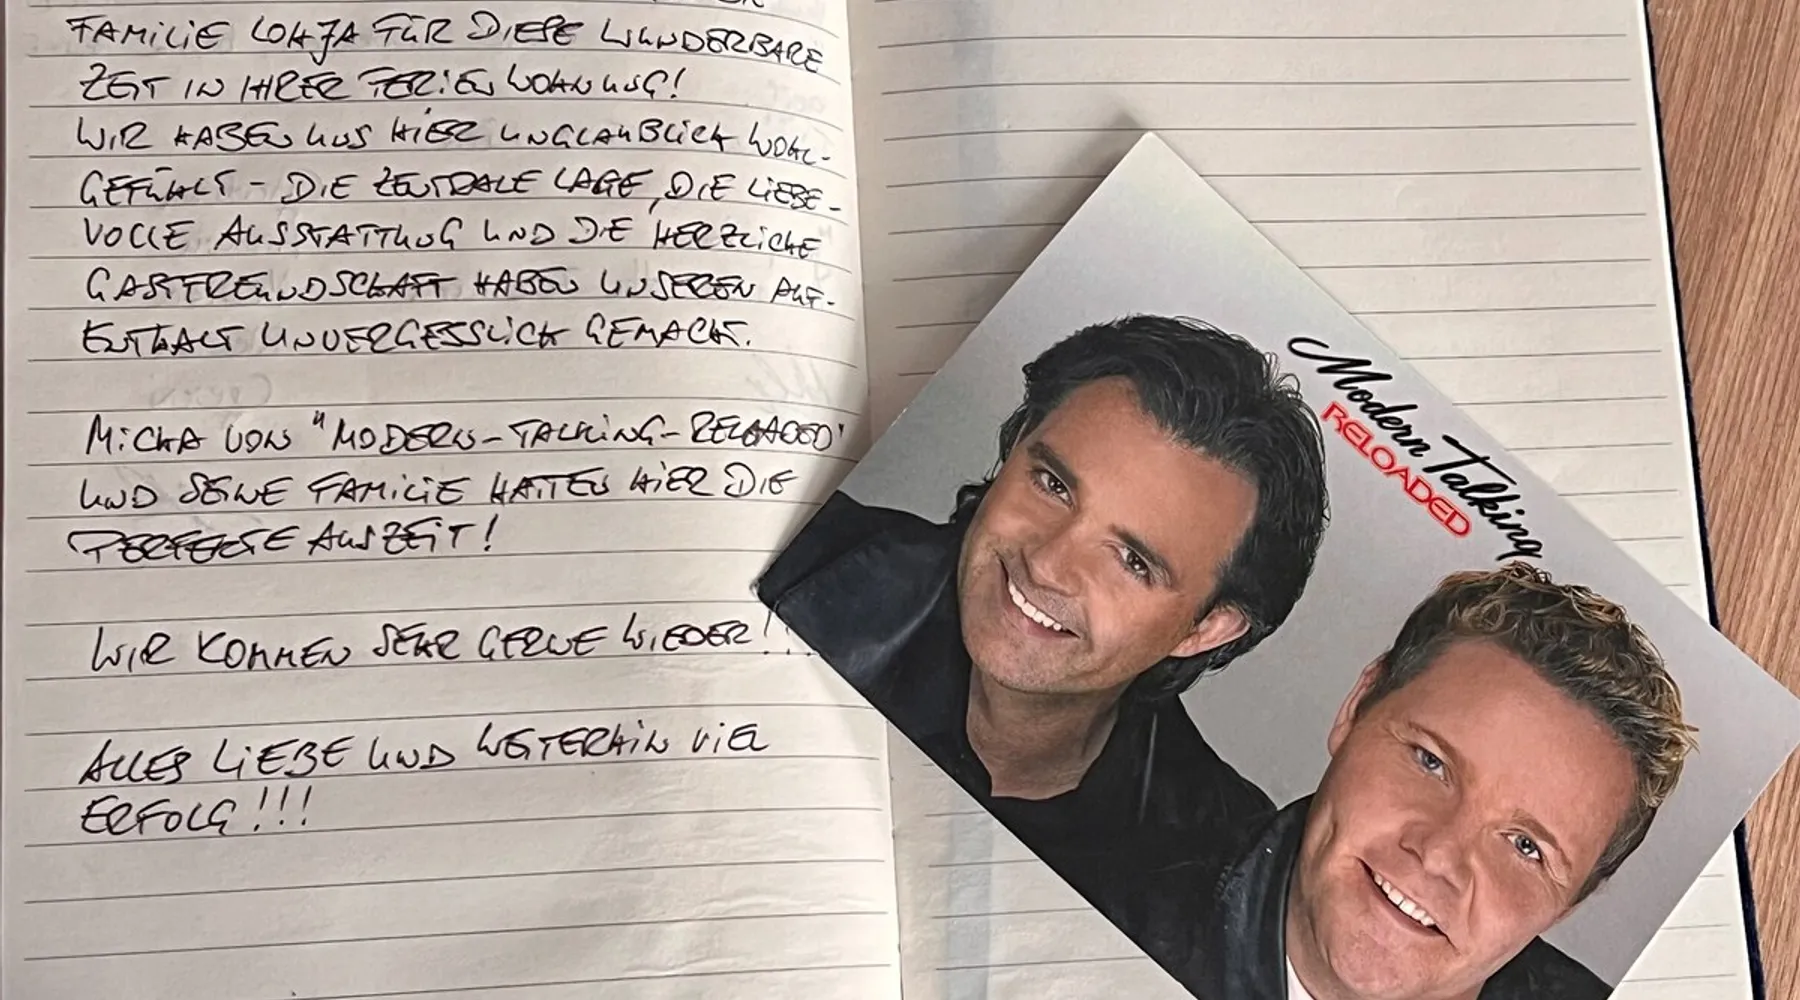 FAMILIE LOHJA FÜR DIESE WUNDERBARE
ZEIT IN IHRER FERIENWOHNUNG!
WIR HABEN UNS HIER UNGLAUBLICH WOHL-
GEFÜHLT - DIE ZENTRALE LAGE, DIE LIEBE-
VOLLE AUSSTATTUNG UND DIE HERZLICHE
GASTFREUNDSCHAFT HABEN UNSEREN AUF-
ENTHALT UNVERGESSLICH GEMACHT.
MICHA VON "MODERN-TALKING-RELOADED"
UND SEINE FAMILIE HATTEN HIER DIE
PERFEKTE AUSZEIT!
WIR KOMMEN SEHR GERNE WIEDER!
ALLES LIEBE UND WEITERHIN VIEL
ERFOLG!!!
Modern Talking
RELOADED